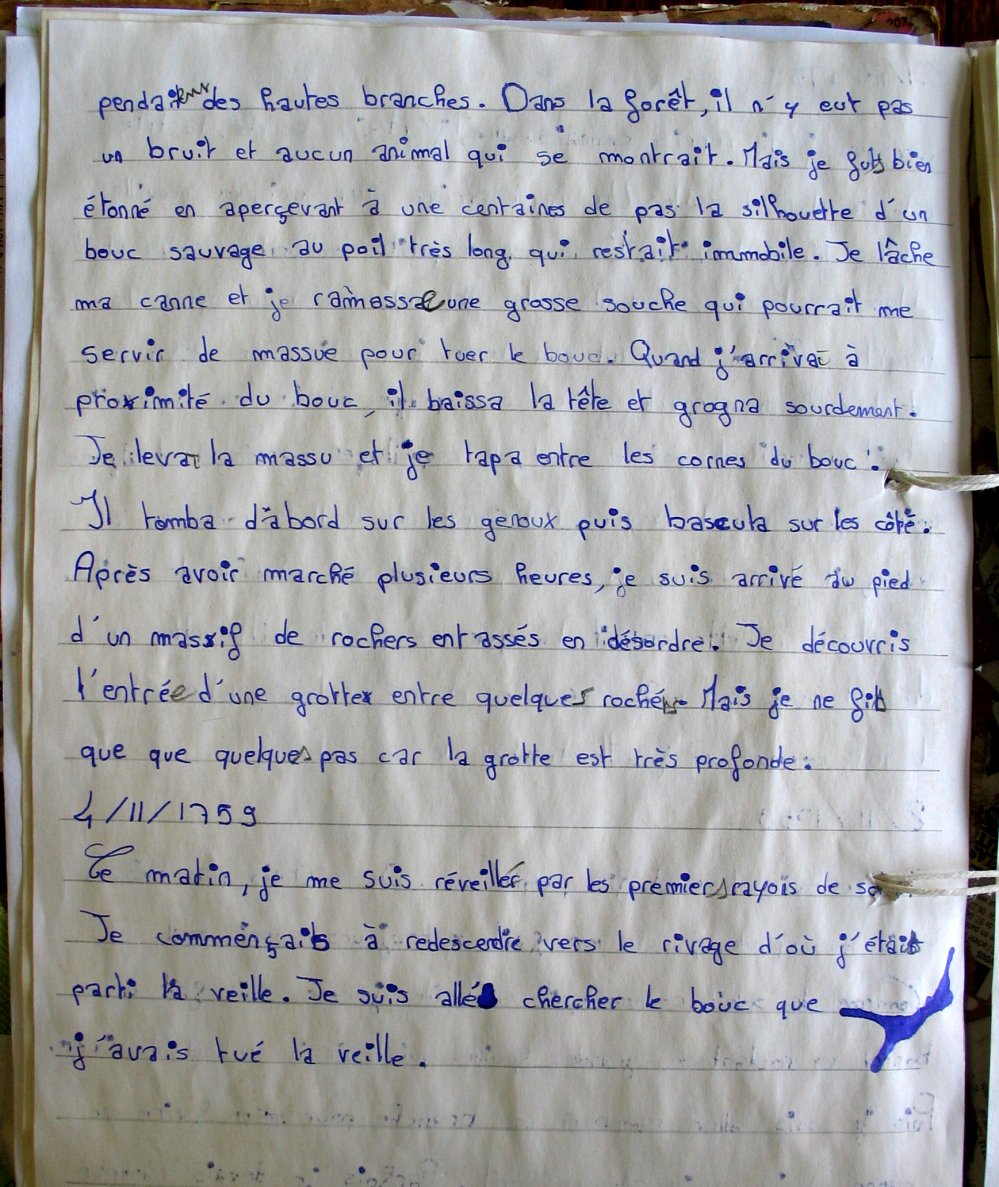 pendaient des hautes branches. Dans la forêt, il n'y eut pas
un bruit et aucun animal qui se montrait. Mais je futs bien
étonné en aperçevant à une centaines de pas la silhouette d'un
bouc sauvage au poil très long qui restait immobile. Je lâche
ma canne et je ramassae une grosse souche qui pourrait me
servir de massue pour tuer le bouc. Quand j'arrivai à
proximité du bouc, il baissa la tête et grogna sourdement.
Je levai la massu et je tapa entre les cornes du bouc.
Il tomba d'abord sur les genoux puis bascula sur les côté.
Après avoir marché plusieurs heures, je suis arrivé au pied
d'un massif de rochers entassés en désordre. Je découvris
l'entrée d'une grotte entre quelques rochés. Mais je ne fit
que que quelques pas car la grotte est très profonde.
4/11/1759
Ce matin, je me suis réveillé par les premiers rayois de
Je commençais à redescendre vers le rivage d'où j'étais
parti la veille. Je suis allé chercher le bouc que
j'avais tué la veille.